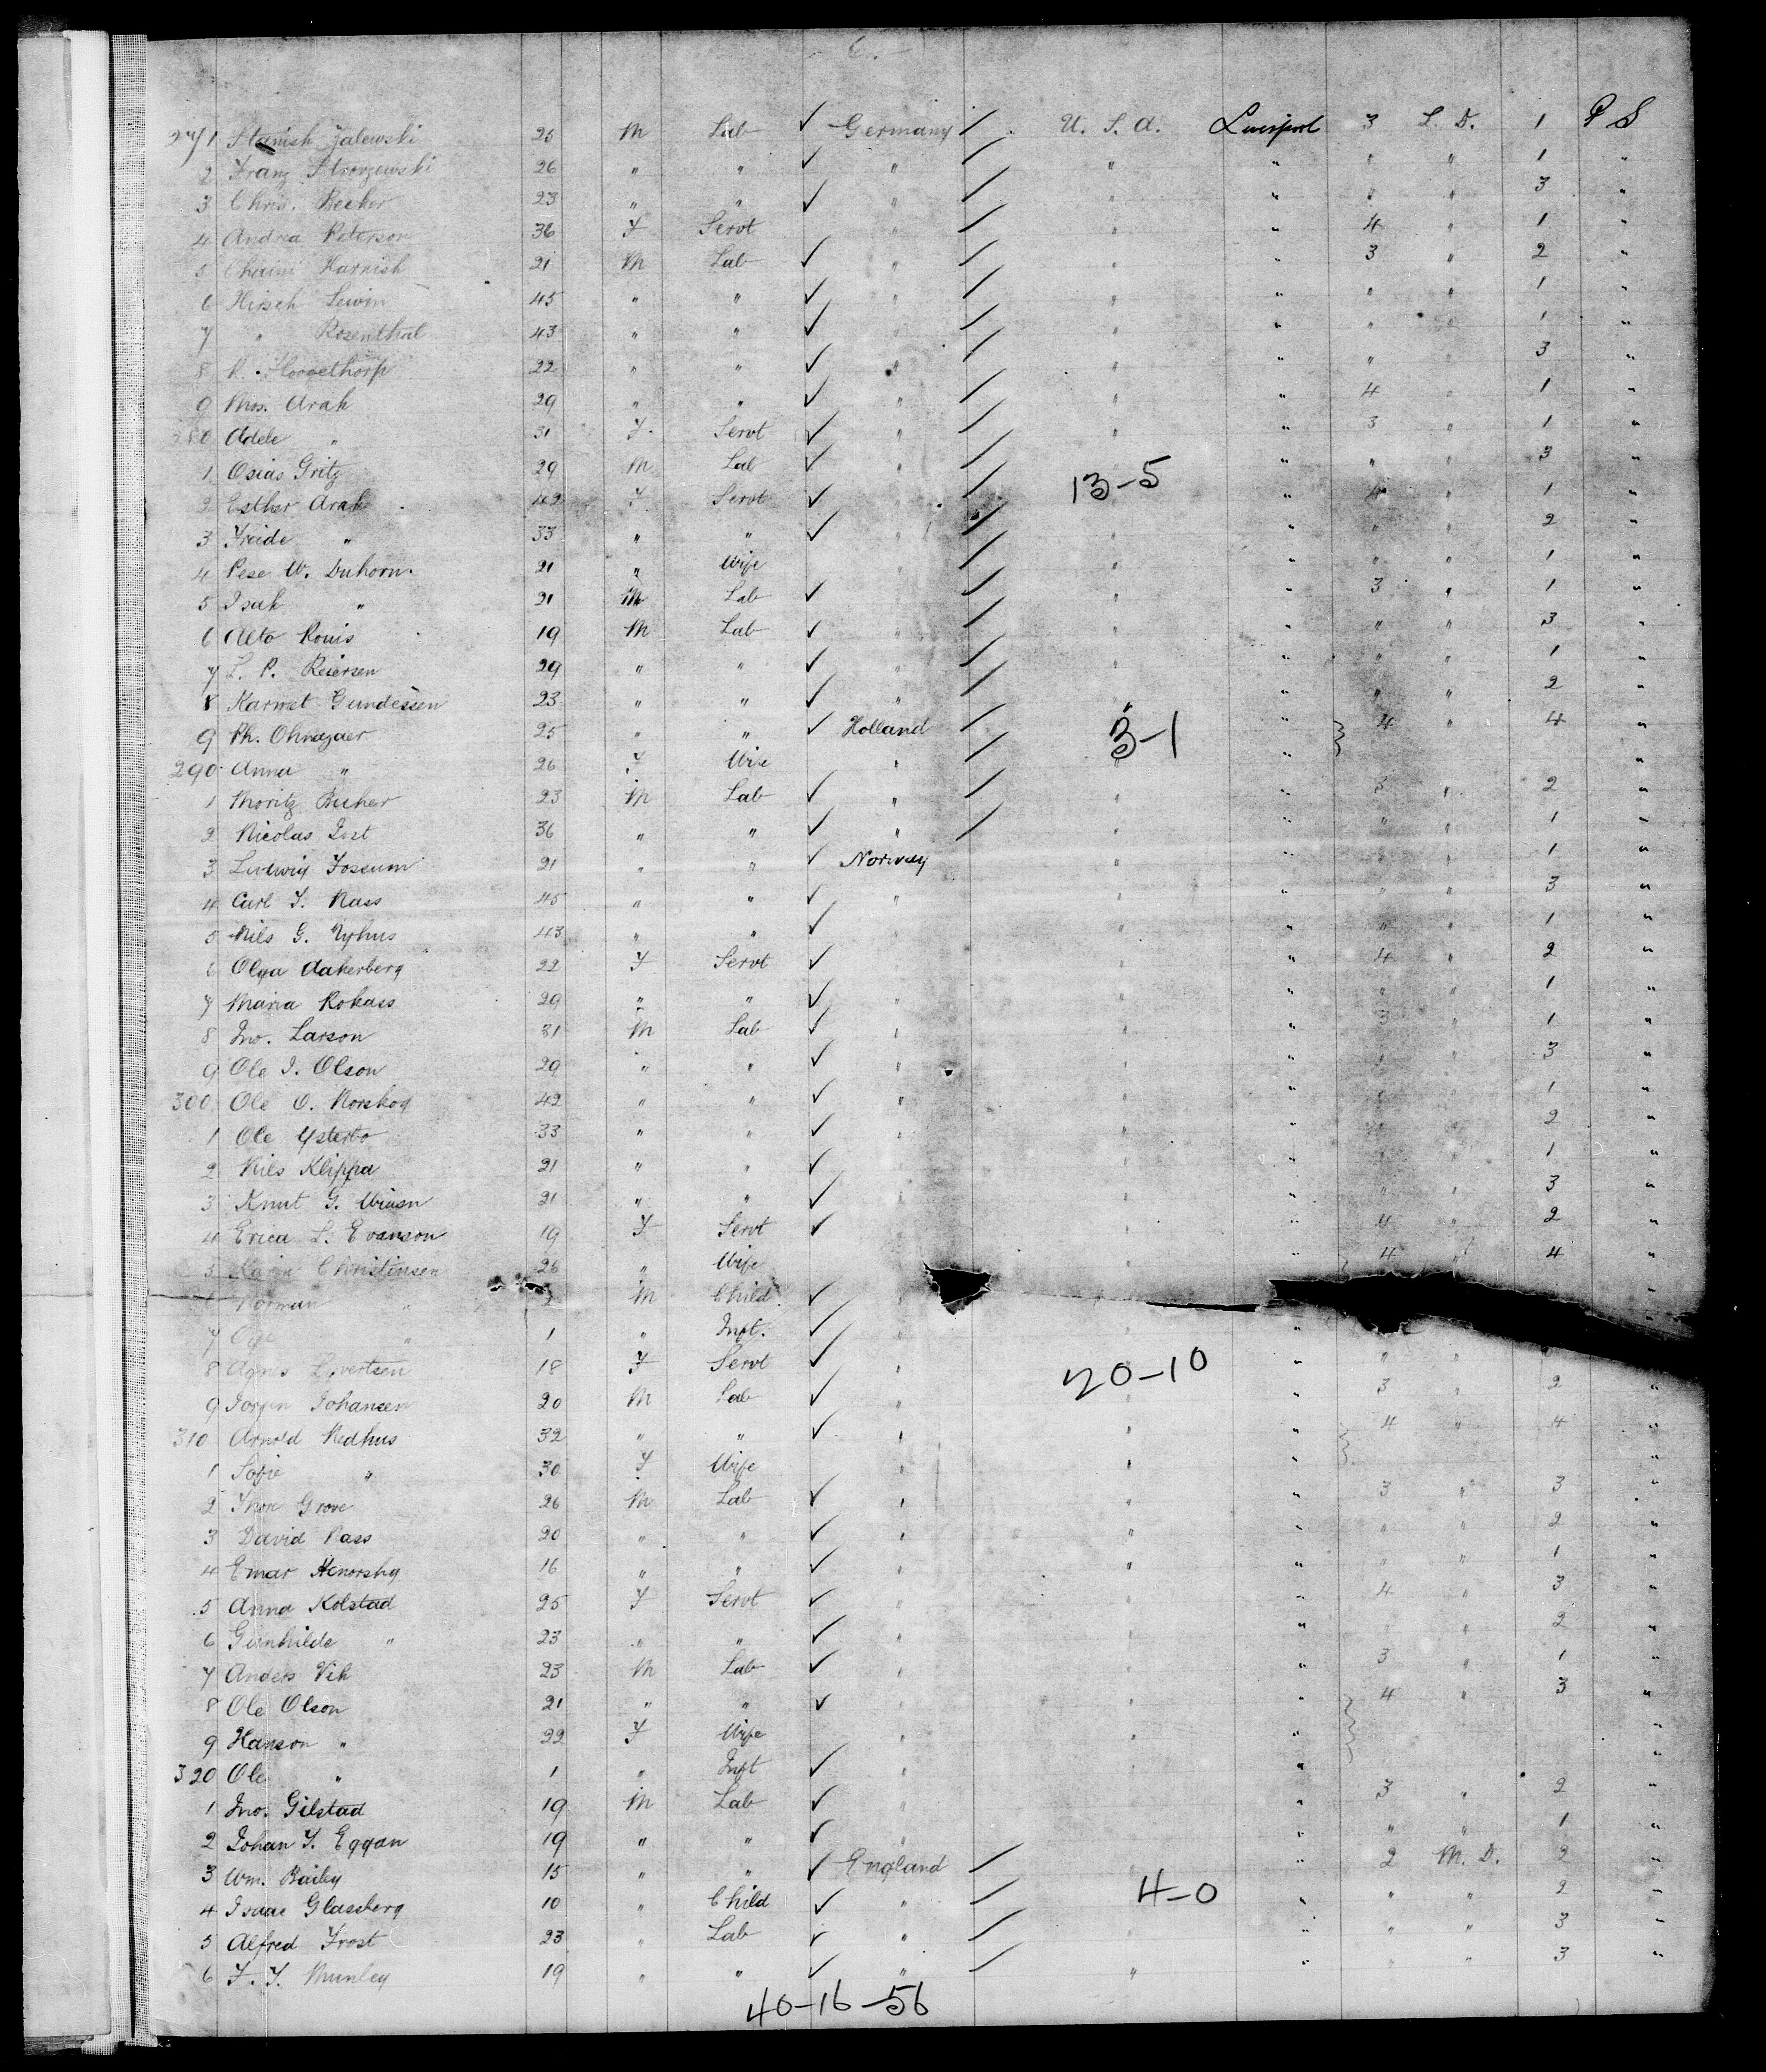 6.
271 Stanish Zalewski 25 M Lab ✓ Germany / U. S. A. Liverpool 3 L. D. 1 P S
2 Franz 26 " " ✓ " / " " " " 1 "
3 Chris. Becker 23 " " ✓ " / " " " " 3 "
4 Andrea Peterson 36 F Servt " / " " 4 " 1 "
5 Harnish 21 M Lab ✓ " / " " 3 " 2 "
6 Hirsch Lewin 45 " " ✓ " / " " " " 1 "
7 " Rosenthal 43 " " ✓ " / " " " " 1 "
8 22 " " ✓ " / " " " " 3 "
9 Mos. Arak 29 " " ✓ " / " " 4 " 1 "
280 Adele " 31 F. Servt ✓ " / " " 3 " 1 "
1 Osias Gritz 29 M Lab ✓ " / " " " " 3 "
13-5
2 Esther Arak 42 F Servt ✓ " / " " 4 " 1 "
3 Freide " 33 " " ✓ " / " " " " 2 "
4 Pese W. Duhorn 21 " Wife " / " " " " 1 "
5 Isak " 21 M Lab ✓ / " " 3 " 1 "
6 Alto Rouis 19 M Lab ✓ " / " " " " 3 "
7 L. P. Reiersen 29 " " ✓ " / " " " " 1 "
8 Karmet Gundessen 23 " " ✓ " / " " " " 2 "
9 Ph. 25 " " ✓ Holland / 3-1 " 4 " 4 "
290 Anna " 26 F Wife " / " " "
1 Moritz Bucher 23 M Lab ✓ " / " " 3 " 2 "
2 Nicolas 36 " " ✓ " / " " " " 1 "
3 Ludwig Fossum 21 " " ✓ Norway " " " " 1 "
4 Carl F. Nass 45 " " ✓ " " " " " 3 "
5 Nils G. Nyhus 43 " " ✓ " " " " 1 "
6 Olga Aakerberg 22 F Servt ✓ " " 4 " 2 "
7 Maria Rokass 29 " " ✓ " " " " " 1 "
8 Jno. Larson 31 M Lab ✓ " " " 3 " 1 "
9 Ole I. Olson 29 " " ✓ " " " " " 3 "
300 Ole O. Norskog 42 " " ✓ " " " " " 1 "
1 Ole Ysterbo 33 " " ✓ " " " " " 2 "
2 Nils Klippa 21 " " ✓ " " " " " 1 "
3 Knut G. 21 " " ✓ " " " " " 3 "
4 Erica L. Evanson 19 F Servt ✓ " " 4 " 2 "
5 Karin Christensen 26 " Wife " 4 " 4 "
6 Norman " M Child ✓ " "
7 " 1 " Inft. ✓ " " "
8 Agnes 18 F Servt ✓ " 20-10 " " "
9 Jorgen Johansen 20 M Lab ✓ " " " 3 " 2 "
310 Arnold Nedhus 32 " " ✓ " " " 4 " 4 "
1 Sofie " 30 F Wife " " " "
2 Thore Grove 26 M Lab ✓ " " " 3 " 3 "
3 David Nass 20 " " ✓ " " " " " 2 "
4 Emar 16 " " ✓ " " " " " 1 "
5 Anna Kolstad 25 F Servt ✓ " " " 4 " 3 "
6 Gunhilde " 23 " " ✓ " " " " " 2 "
7 Anders Vik 23 M Lab ✓ " " " 3 " 1 "
8 Ole Olson 21 " " ✓ " " " 4 " 3 "
9 Hanson " 22 F Wife " " " "
320 Ole " 1 " Inft ✓ " " " "
1 Jno. Gilstad 19 M Lab ✓ " " 3 " 2 "
2 Johan F. Eggan 19 " " ✓ " " " " " 1 "
3 Wm. Bailey 15 " " ✓ England / " " 2 M. D. 2 "
4 Isaac Glassberg 10 " Child ✓ " / 4-0 " " " 2 "
5 Alfred Frost 23 " Lab ✓ " / " " " " 3 "
6 F. F. Munley 19 " " ✓ " / " " " " 3 "
40-16-56